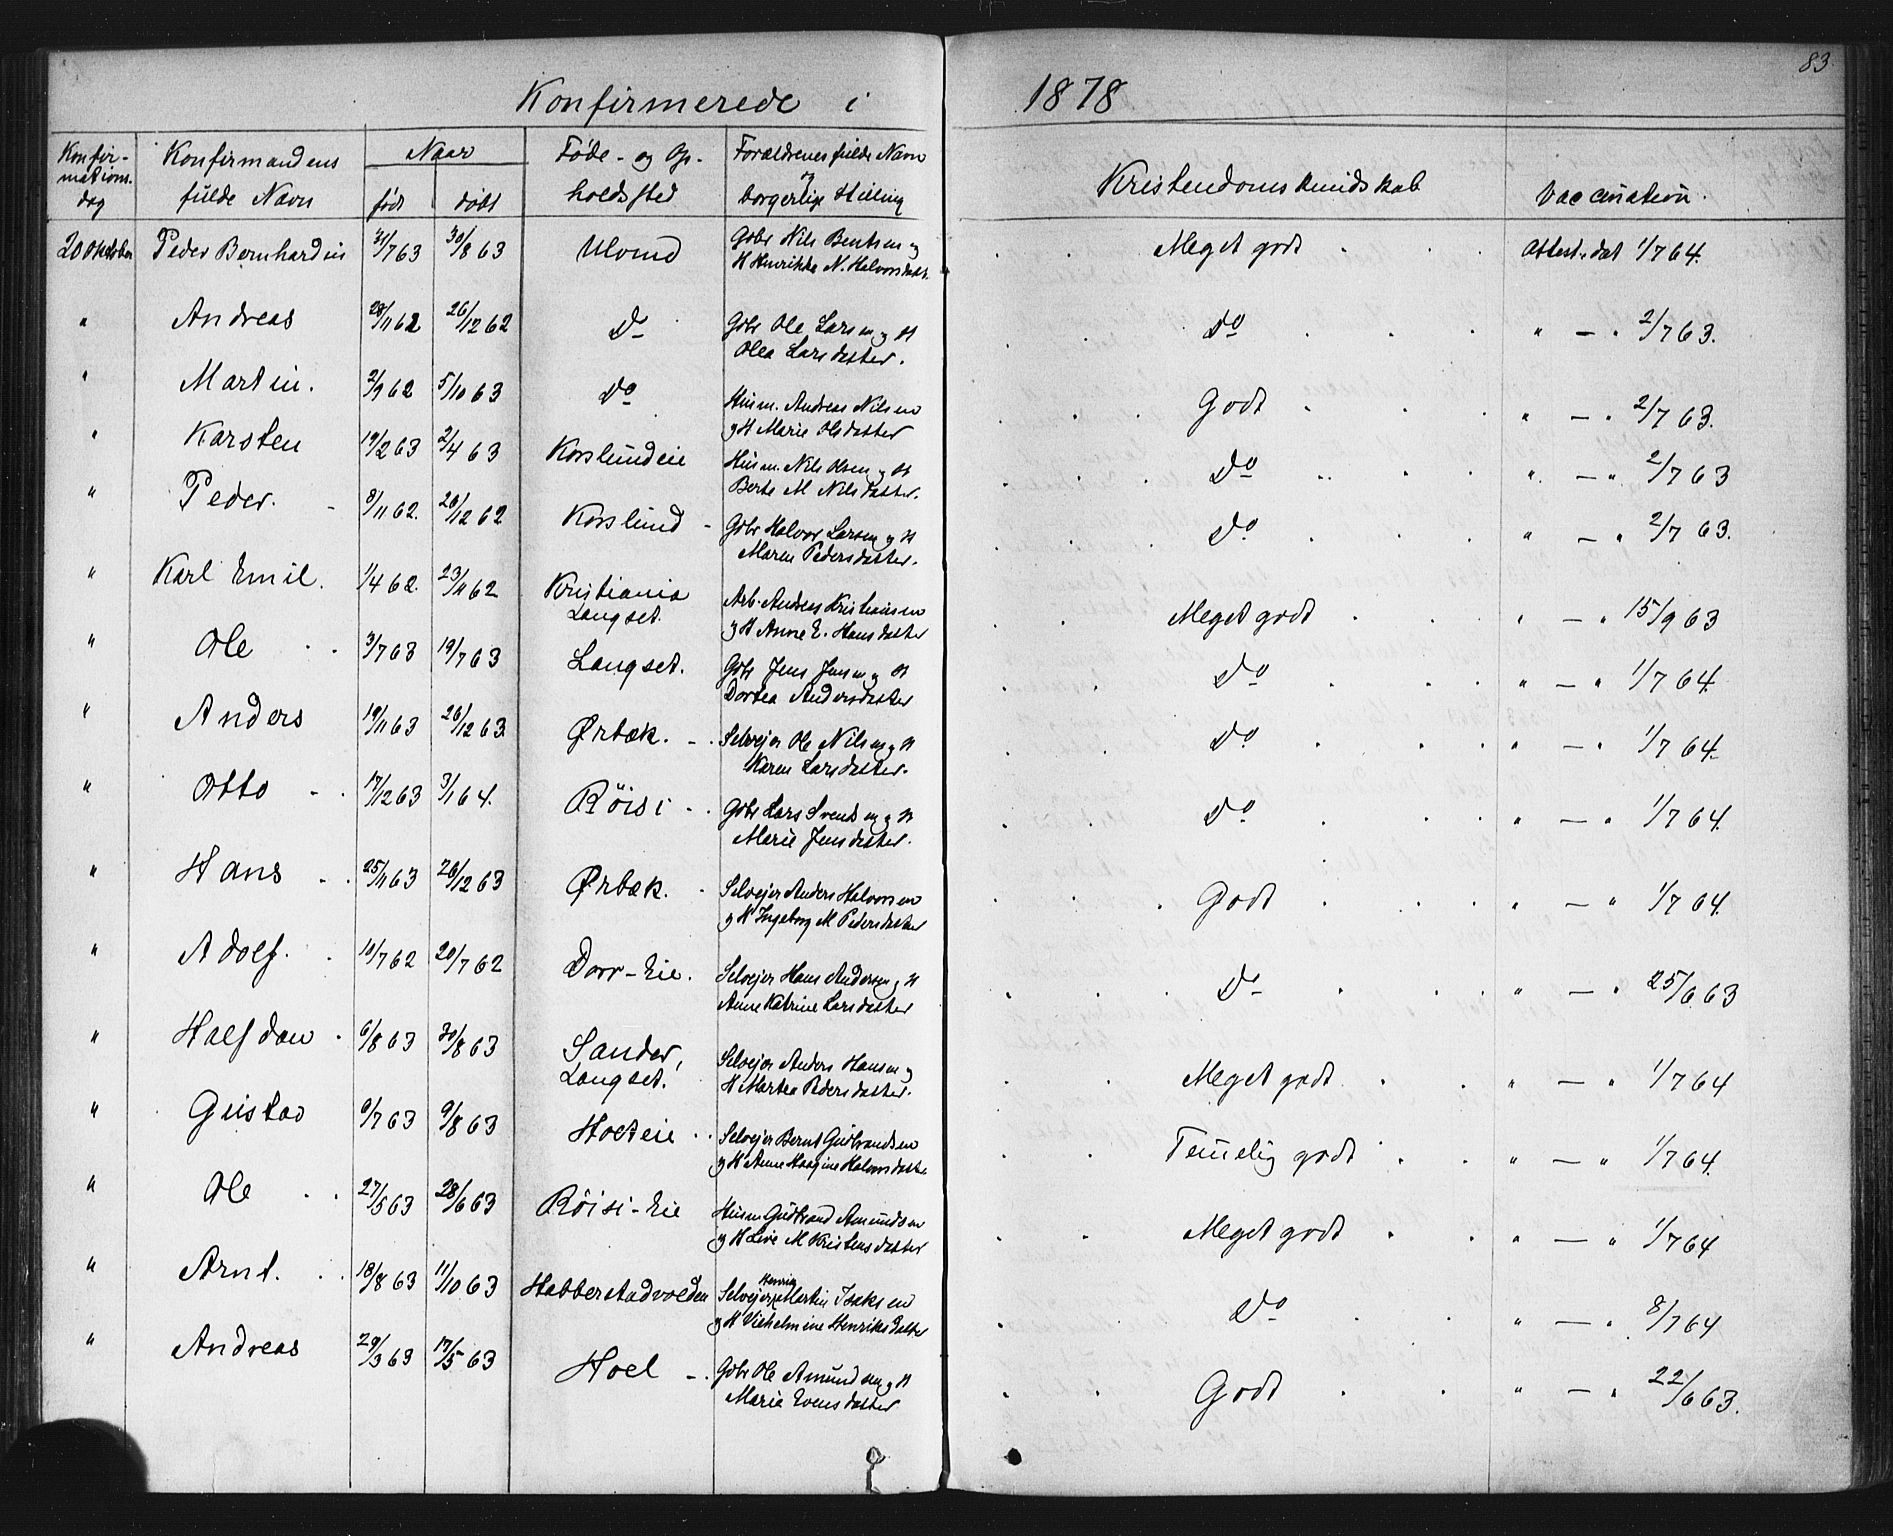 83
Konfirmerede i 1878
Konfir-
mations.
dag
Konfirmandens
fulde Navn
Naar
født
døbt
Føde- og Op-
holdssted
Forældrenes fulde Navn
og
borgerlige Stilling
Kristendomskundskab
Vaccination.
20 Oktober Peder Bernhardin 31/7 63 30/8 63 Ulvind Gdbr Nils Bentsen og Meget godt Attest. dat 1/7 64.
H Henrikke N. Halvorsdatt.
" Andreas 28/11 62 26/12 62 Do Gdbr Ole Larsen og H Do " — " 2/7 63.
Olea Larsdatter.
" Martin. 2/9 62 5/10 63 Do Husm. Andreas Nilsen Godt " — " 2/7 63.
og H Marie Olsdatter
" Karsten 19/2 63 2/4 63 Korslundeie Husm. Nils Olsen og H Do " — " 2/7 63
Berte M Nilsdatter.
" Peder. 8/11 62. 26/12 62 Korslund Gdbr Halvor Larsen og H Do " — " 2/7 63.
Maren Pedersdatter.
" Karl Emil. 1/4 62. 23/11 62 Kristiania Arb. Andreas Kristiansen Meget godt " — " 15/9 63
Langset. og H Anne E. Hansdatter
" Ole 3/7 63 19/7 63 Langset. Gdbr Jens Jensen og H Do " — " 1/7 64.
Dortea Andersdatter
" Anders 19/11 63 26/12 63 Ørbæk. Selvejer Ole Nilsen og H Do " — " 1/7 64.
Karen Larsdatter.
" Otto 17/12 63 3/1 64. Röisi Gdbr Lars Svendsen og H Do " — " 1/7 64.
Marie Jensdatter.
" Hans 25/11 63 26/12 63 Ørbæk. Selvejer Anders Halvorsen Godt " — " 1/7 64.
og H Ingeborg M Pedersdatter
" Adolf. 10/7 62 20/7 62 Dorr-Eie. Selvejer Hans Andersen og H Do " — " 25/6 63
Anne Katrine Larsdatter
" Halfdan 6/8 63 30/8 63 Sander, Selvejer Anders Hansen og Meget godt " — " 1/7 64
Langset. H Martea Pedersdatter.
" Gustav 9/7 63 9/8 63 Holteie Selvejer Bernt Gudbrandsen Temelig godt " — " 1/7 64.
og H Anne Haagine Halvorsdatte
" Ole 27/5 63 28/6 63 Röisi-Eie Husm Gudbrand Amundsen Meget godt " — " 1/7 64
og H Live M Kristensdatter
" Arnt. 18/8 63 11/10 63 Habberstadvolden Selvejer Henrik Martin Isaksen Do " — " 8/7 64
og H Vilhelmine Henriksdatter
" Andreas 29/3 63 17/5 63 Hoel Gdbr Ole Amundsen og H Godt " — " 22/6 63.
Marie Evensdatter